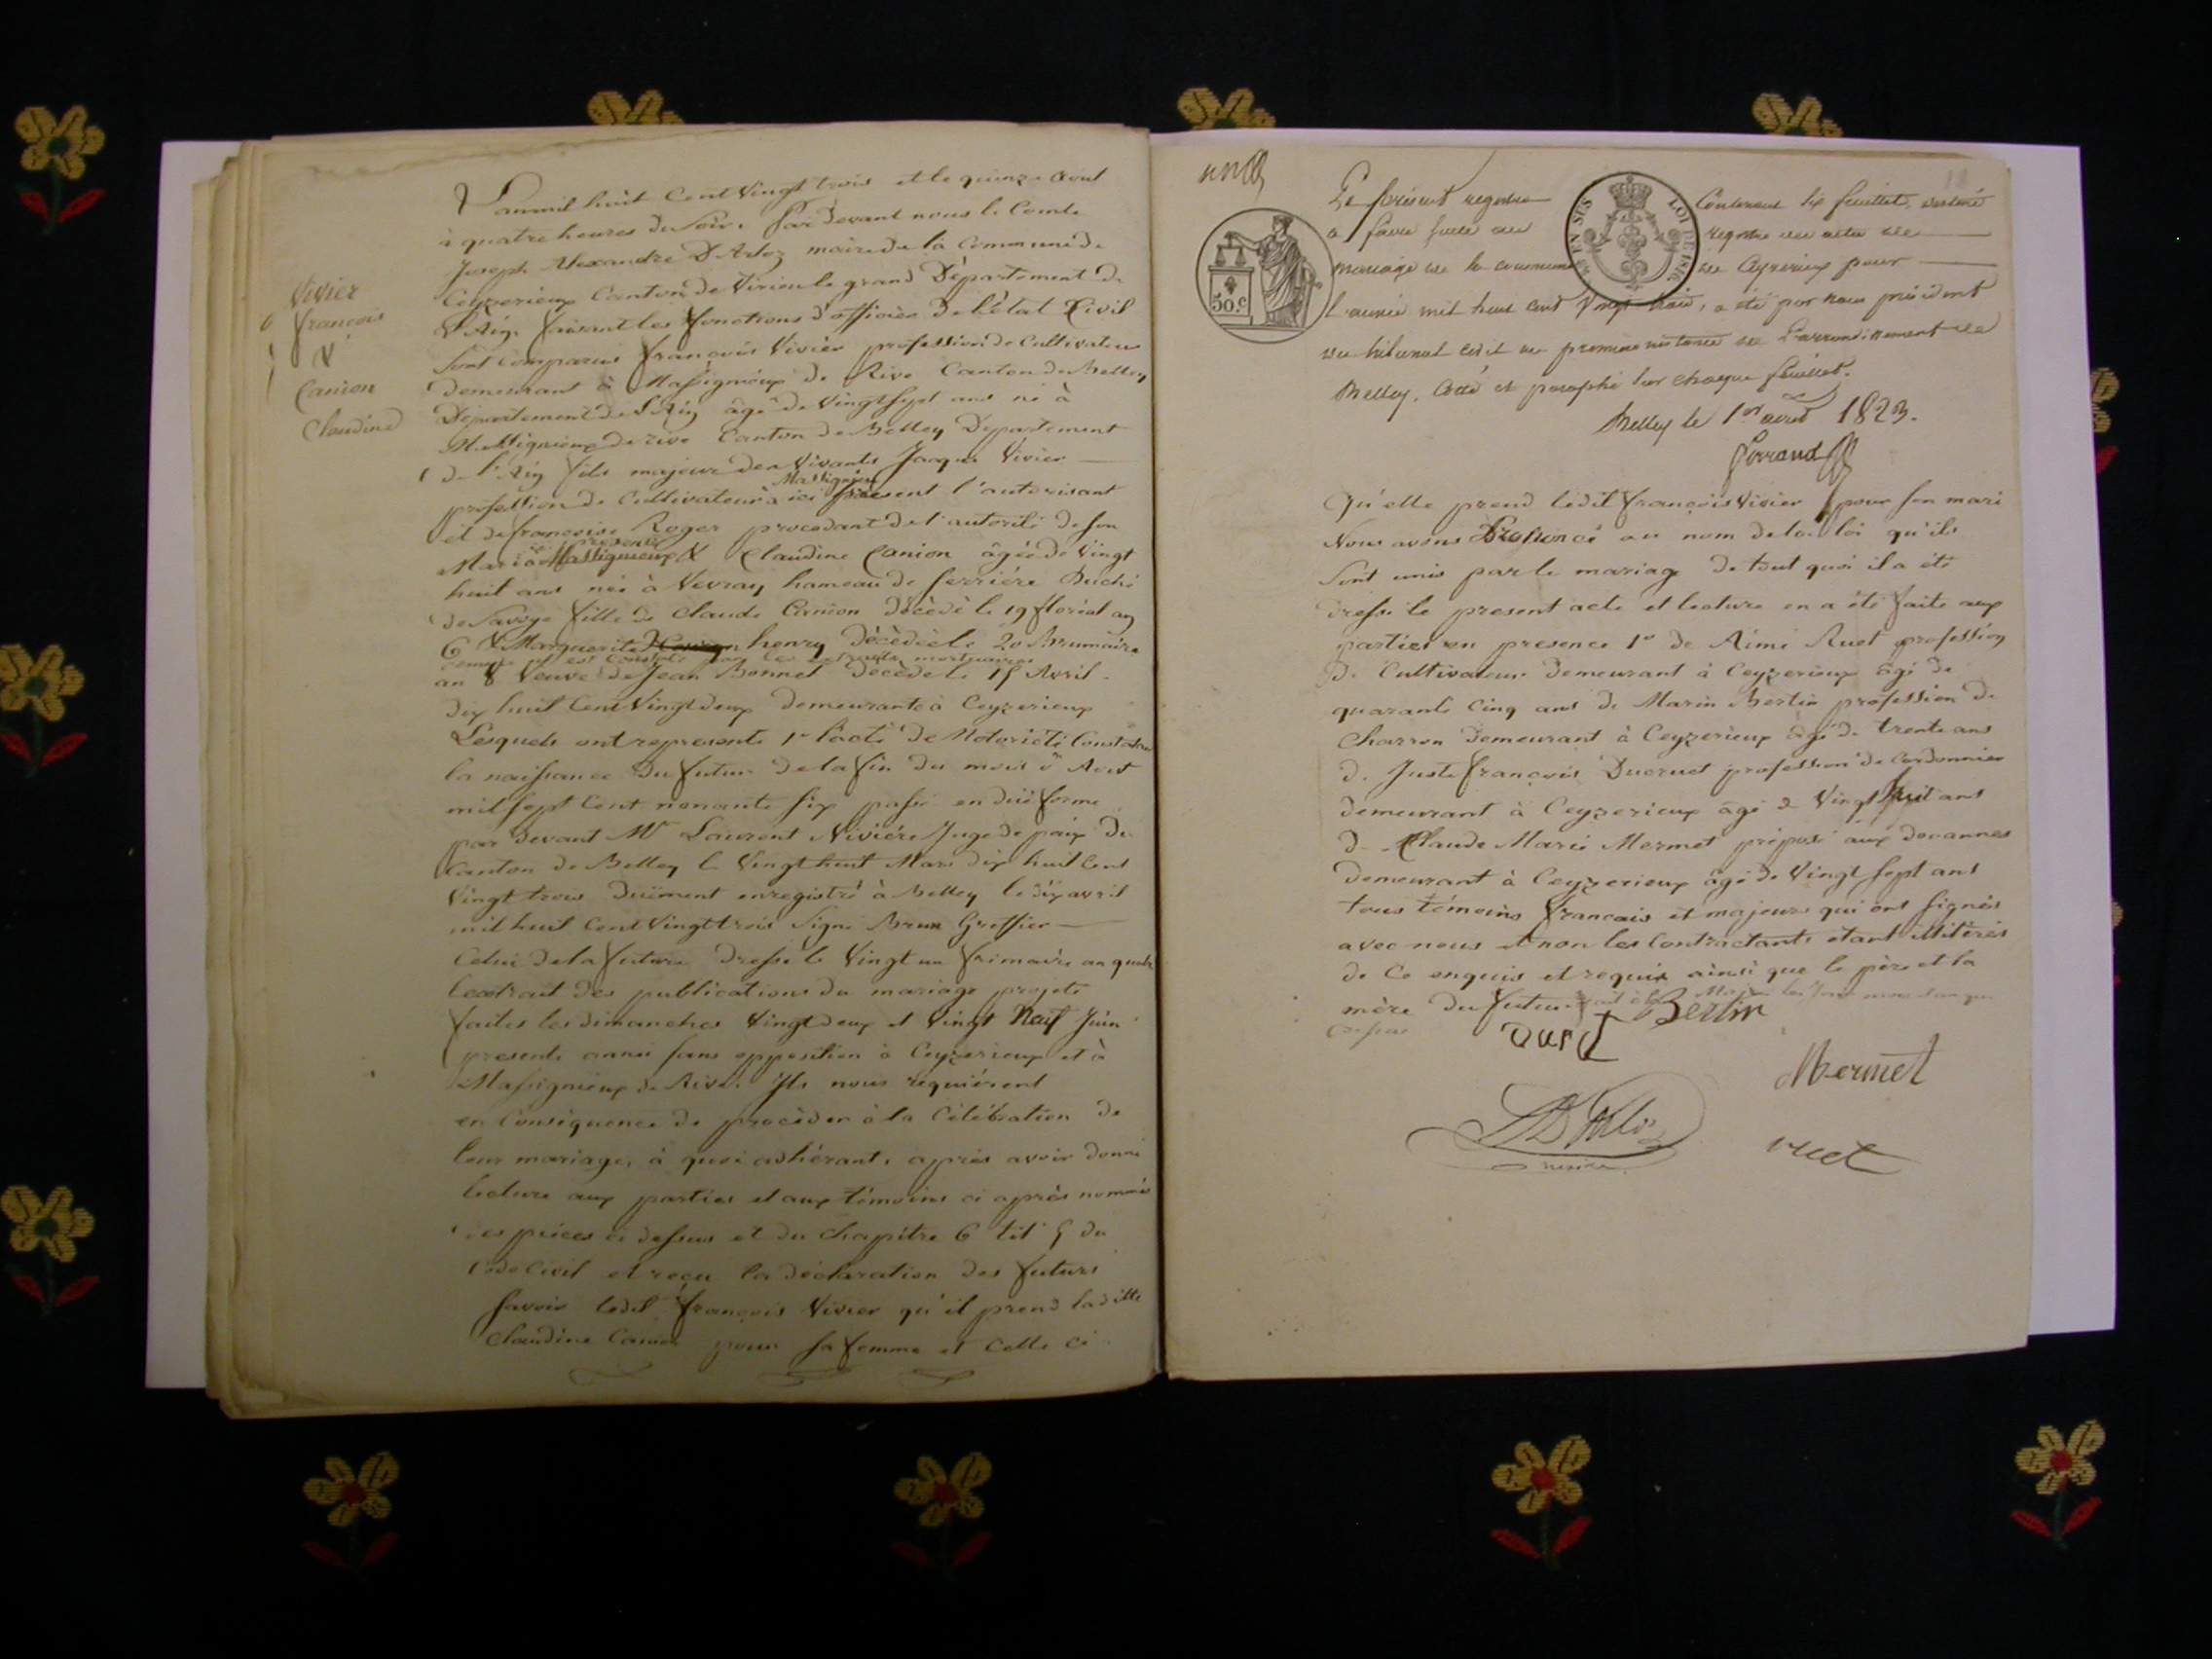 Vivier
francois
&
Canion
Claudine
L'an mil huit Cent Vingt trois et le quinze Aout
à quatre heures du Soir. Par devant nous le Comte
Joseph Alexandre D'Arloz maire de la Commune de
Ceyzerieux Canton de Virieu le grand Département de
L'Ain, faisant les fonctions d'officier de l'état Civil
Sont comparus françois Vivier profession de Cultivateur
demeurant à Massigneux de Rive Canton de Belley
Département de L'Ain âgé de Vingt Sept ans né à
Massignieux de rive Canton de Belley Département
de L'Ain fils majeur des Vivants Jacques Vivier
profession de Cultivateur à Massignieu ici présent l'autorisant
et de francoise Roger procedant de l'autorité de son
Mari à Massignieux & Claudine Canion âgée de Vingt
huit ans née à Nevray hameau de ferriére Duché
de Savoye fille de Claude Canion Décédé le 19 floréal an
6 & Marguerite henry Décédée le 20 Brumaire
comme il est constaté par les extraits mortuaires
an 8 Veuve de Jean Bonnet Décédé le 15 Avril
dix huit Cent Vingt deux demeurante à Ceyzerieux
Lesquels ont représenté 1° l'acte de Notoriété Constatant
la naissance du futur de la fin du mois d'Aout
mil sept Cent nonante six passé en düe forme
par devant Mr Laurent Nivière Juge de paix du
Canton de Belley le Vingt huit Mars dix huit Cent
Vingt trois Duement enregistré à Belley le dix avril
mil huit Cent Vingt trois Signé Brun Greffier
Celui de la future Dressé le Vingt un frimaire an quatre
l'extrait des publications du mariage projeté
faites les dimanches Vingt deux et Vingt Neuf Juin
presente année sans opposition à Ceyzerieux et à
Massignieux de Rive. Ils nous requiérent
en Conséquence de procéder à la Célébration de
leur mariage, à quoi adhérant, après avoir donné
lecture aux parties et aux témoins ci après nommés
des pièces ci dessus et du Chapitre 6 tit 5 du
Code Civil et reçu la déclaration des futurs
Savoir ledit françois Vivier qu'il prend ladite
Claudine Canion pour sa femme et Celle ci
Le présent registre Contenant dix feuillets, destiné
à faire suite au registre des actes de
mariage de la commune de Ceyzerieux pour
l'année mil huit cent vingt trois, a été par nous président
du tribunal civil de première instance de l'arrondissement de
Belley, Cotté et paraphé sur chaque feuillet.
Belley le 1er avril 1823.
Ferrand
EN SUS
LOI DE 1816
50.c
Qu'elle prend ledit françois Vivier pour son mari
Nous avons Prononcé au nom de la loi qu'ils
Sont unis par le mariage de tout quoi il a été
Dressé le present acte et lecture en a été faite aux
parties en presence 1° de Aimé Ruet profession
de Cultivateur demeurant à Ceyzerieux âgé de
quarante Cinq ans de Marin Bertin profession de
Charron demeurant à Ceyzerieux âgé de trente ans
de Juste françois Ducruet profession de Cordonnier
demeurant à Ceyzerieux âgé de Vingt huit ans
de Claude Marie Mermet préposé aux douannes
Demeurant à Ceyzerieux âgé de Vingt Sept ans
tous témoins francais et majeurs qui ont signés
avec nous & non les Contractants étant illitérés
de Ce enquis et requis ainsi que le père et la
mère du futur. fait à la Mairie les
Bertin
Mermet
ruet